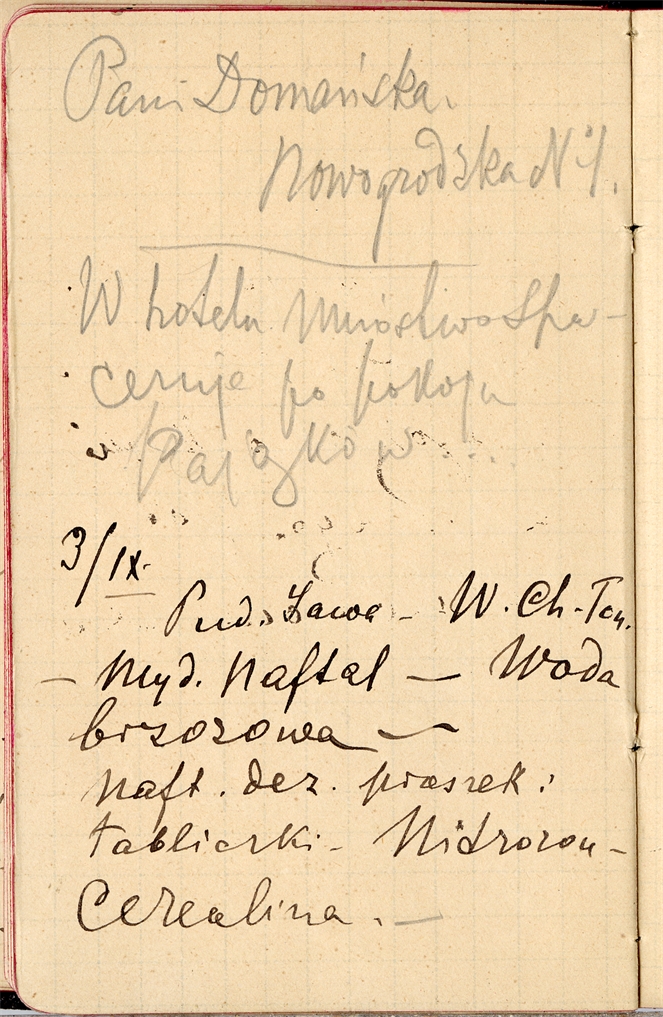 Pani Domańska.
Nowogrodzka N 1.
W hotelu mnóstwo Spa-
ceruje po pokoju
Pajączków...
3/IX.
Pud. Zawa - W. Ch-Ton.
- Myd. Naftal — Woda
brzozowa —
Naft. dez. proszek i
tabliczki - Nidrozon -
Cerealina. -